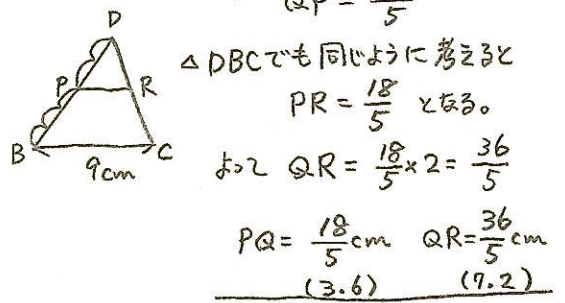 QP = 18/5
D
P
R
B
C
9cm
△DBCでも同じように考えると
PR = 18/5 となる。
よって QR = 18/5 × 2 = 36/5
PQ = 18/5 cm QR = 36/5 cm
(3.6) (7.2)